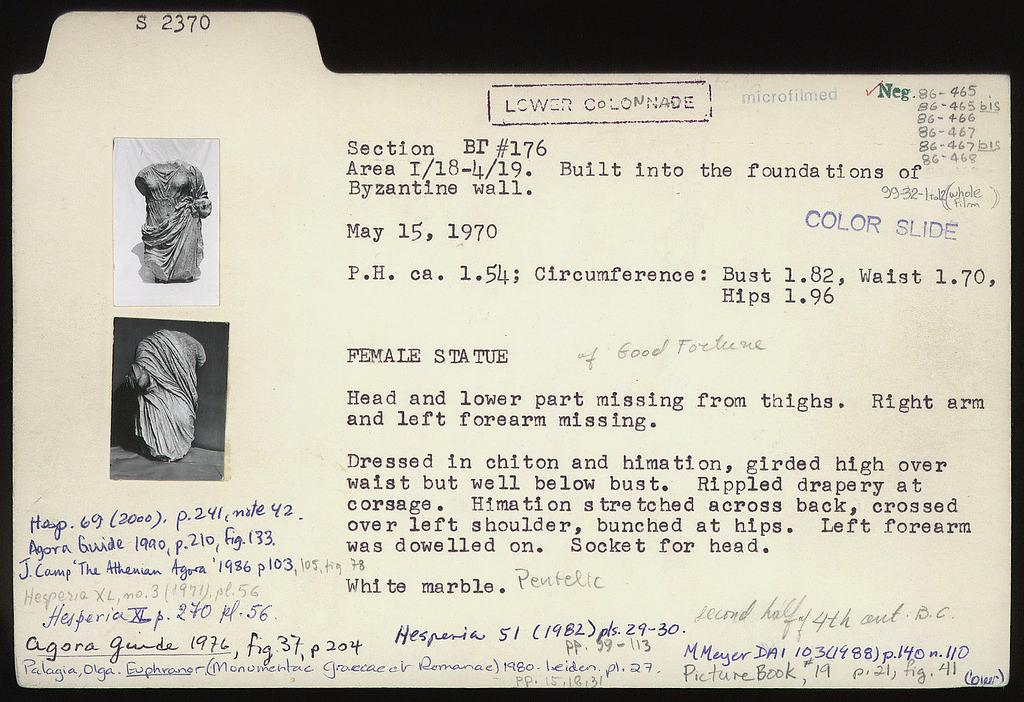 S 2370
LOWER COLONNADE
microfilmed
Neg. 86-465
86-465 bis
86-466
86-467
86-467 bis
86-468
Section BΓ #176
Area I/18-4/19. Built into the foundations of
Byzantine wall.
99-32-1 to 12 (whole film)
May 15, 1970
COLOR SLIDE
P.H. ca. 1.54; Circumference: Bust 1.82, Waist 1.70,
Hips 1.96
FEMALE STATUE of Good Fortune
Head and lower part missing from thighs. Right arm
and left forearm missing.
Dressed in chiton and himation, girded high over
waist but well below bust. Rippled drapery at
corsage. Himation stretched across back, crossed
over left shoulder, bunched at hips. Left forearm
was dowelled on. Socket for head.
White marble. Pentelic
second half of 4th cent. B.C.
Hesp. 69 (2000). p.241, note 42.
Agora Guide 1990, p.210, fig.133.
J. Camp 'The Athenian Agora' 1986 p103, 105, fig 78
Hesperia XL, no.3 (1971), pl.56
Hesperia XL p. 270 pl. 56.
Agora Guide 1976, fig.37, p 204
Hesperia 51 (1982) pls. 29-30.
pp. 99-113
Palagia, Olga. Euphranor (Monumenta Graeca et Romana) 1980. Leiden. pl. 27.
pp. 15,18,31
M Meyer DAI 103 (1988) p.140 n.110
Picture Book, #19 p.21, fig. 41
(over)